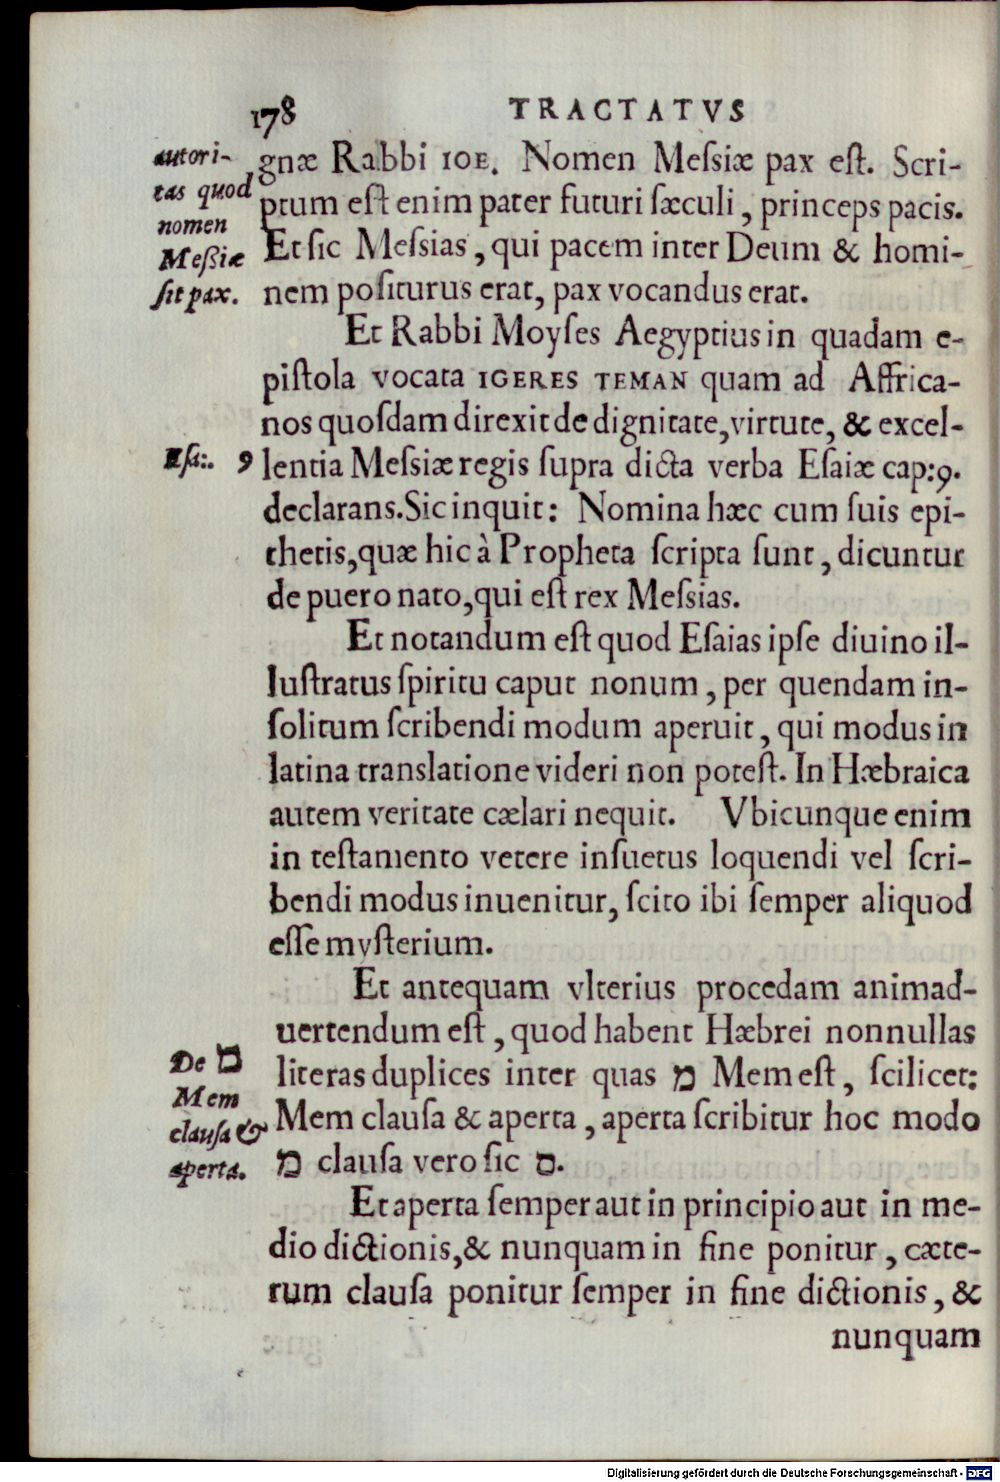 178 TRACTATVS
autori-
tas quod
nomen
Meßiæ
ſit pax.
gnæ Rabbi IOE. Nomen Meſsiæ pax eſt. Scri-
ptum eſt enim pater futuri ſæculi, princeps pacis.
Et ſic Meſsias, qui pacem inter Deum & homi-
nem poſiturus erat, pax vocandus erat.
Et Rabbi Moyſes Aegyptius in quadam e-
piſtola vocata IGERES TEMAN quam ad Affrica-
nos quoſdam direxit de dignitate, virtute, & excel-
Eſa:. 9
lentia Meſsiæ regis ſupra dicta verba Eſaiæ cap:9.
declarans. Sic inquit: Nomina hæc cum ſuis epi-
thetis, quæ hic à Propheta ſcripta ſunt, dicuntur
de puero nato, qui eſt rex Meſsias.
Et notandum eſt quod Eſaias ipſe diuino il-
luſtratus ſpiritu caput nonum, per quendam in-
ſolitum ſcribendi modum aperuit, qui modus in
latina translatione videri non poteſt. In Hæbraica
autem veritate cælari nequit. Vbicunque enim
in teſtamento vetere inſuetus loquendi vel ſcri-
bendi modus inuenitur, ſcito ibi ſemper aliquod
eſſe myſterium.
Et antequam vlterius procedam animad-
uertendum eſt, quod habent Hæbrei nonnullas
De מ
Mem
clauſa &
aperta.
literas duplices inter quas מ Mem eſt, ſcilicet:
Mem clauſa & aperta, aperta ſcribitur hoc modo
מ clauſa vero ſic ם.
Et aperta ſemper aut in principio aut in me-
dio dictionis, & nunquam in fine ponitur, cæte-
rum clauſa ponitur ſemper in fine dictionis, &
nunquam
Digitalisierung gefördert durch die Deutsche Forschungsgemeinschaft - DFG